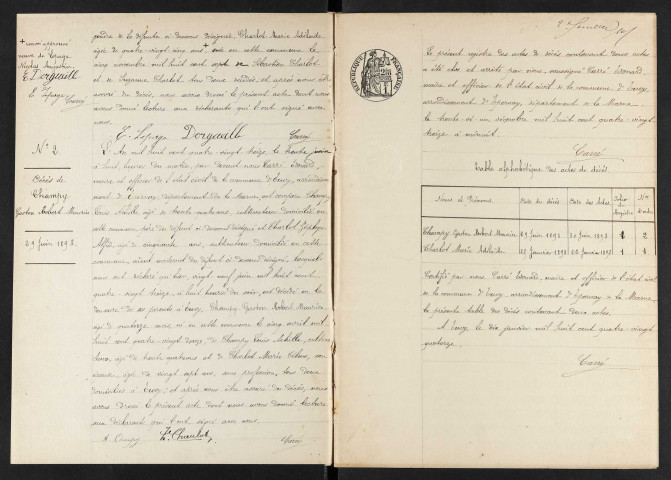 + mon approuvé
veuve de Lepage
Nicolas Augustin
E. Dorguille
E. Lepage
Carré
N° 2.
Décès de
Champy
Gaston Robert Maurice
29 juin 1893.
gendre de la défunte ci dessous désignée, Charlot Marie Adélaïde
âgée de quatre-vingt cinq ans + née en cette commune le
cinq novembre mil huit cent sept de Sébastien Charlot
et de Suzanne Charlot, tous deux décédés, et après nous être
assuré du décès, nous avons dressé le présent acte dont nous
avons donné lecture aux déclarants qui l'ont signé avec
nous.
E. Lepage Dorguille Carré
L'An mil huit cent quatre-vingt treize, le trente juin
à huit heures du matin, par devant nous Carré Edouard,
maire et officier de l'état civil de la commune de
d'Epernay, département de la Marne, ont comparu Champy
Louis Achille, âgé de trente quatre ans, cultivateur domicilié en
cette commune, père du défunt ci dessous désigné et Charlot
Alfred, âgé de cinquante ans, cultivateur domicilié en cette
commune, maternel du défunt ci dessous désigné, lesquels
nous ont déclaré que hier, vingt neuf juin mil huit cent
quatre-vingt treize, à huit heures du soir, est décédé en la
demeure de ses parents à, Champy Gaston Robert Maurice,
âgé de quatorze mois né en cette commune le cinq avril mil
huit cent quatre-vingt douze, de Champy Louis Achille, cultiva-
teur, âgé de trente quatre ans et de Charlot Marie
âgée de vingt sept ans, sans profession, tous deux
domiciliés à; et après nous être assuré du décès, nous
avons dressé le présent acte dont nous avons donné lecture
aux déclarants qui l'ont signé avec nous.
A. Champy Carré
RÉPUBLIQUE FRANÇAISE
Le présent registre des actes de décès contenant deux actes
a été clos et arrêté par nous, soussigné Carré Edouard,
maire et officier de l'état civil de la commune de
arrondissement d'Epernay, département de la Marne,
le trente et un décembre mil huit cent quatre-vingt
treize à minuit.
Carré
Table alphabétique des actes de décès.
Noms et Prénoms. Date du décès Date des Actes. Folio du Registre Nos d'ordre
Champy Gaston Robert Maurice 29 juin 1893 30 juin 1893 1 2
Charlot Marie Adélaïde janvier 1893 janvier 1893 1 1
Certifié par nous Carré Edouard, maire et officier de l'état civil
de la commune d arrondissement d'Epernay de la Marne,
la présente table des décès contenant deux actes.
A, le dix janvier mil huit cent quatre-vingt
quatorze.
Carré